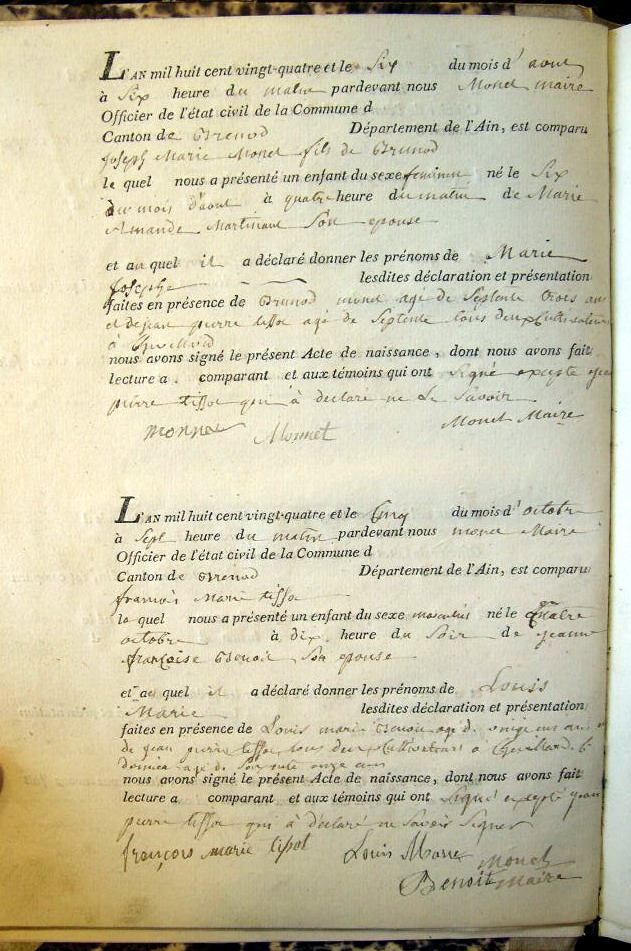 L'AN mil huit cent vingt-quatre et le Six du mois d' aout
à Six heure du matin pardevant nous Monet maire
Officier de l'état civil de la Commune d
Canton de Brenod Département de l'Ain, est comparu
joseph Marie Monet fils de Brunod
le quel nous a présenté un enfant du sexe feminin né le Six
du mois d'aout à quatre heure du matin de Marie
Amande Martinant Son epouse
et au quel il a déclaré donner les prénoms de Marie
josephe lesdites déclaration et présentation
faites en présence de Brunod monet agé de Septente trois ans
et de jean pierre tissot agé de Septente tous deux Cultivateurs
à
nous avons signé le présent Acte de naissance, dont nous avons fait
lecture a comparant et aux témoins qui ont Signé excepté jean
pierre tissot qui à declaré ne Le Savoir
monnet Monnet Monet Maire
L'AN mil huit cent vingt-quatre et le Cinq du mois d' octobre
à Sept heure du matin pardevant nous monet Maire
Officier de l'état civil de la Commune d
Canton de Brenod Département de l'Ain, est comparu
francois Marie tissot
le quel nous a présenté un enfant du sexe masculin né le quatre
octobre à dix heure du Soir de jeanne
françoise Benoit Son epouse
et au quel il a déclaré donner les prénoms de Louis
Marie lesdites déclaration et présentation
faites en présence de Louis marie Benoit agé de ans et
de jean pierre tissot tous deux Cultivateurs a Chevillard
agé de Soixante onze ans
nous avons signé le présent Acte de naissance, dont nous avons fait
lecture a comparant et aux témoins qui ont Signé excepté jean
pierre tissot qui à déclaré ne Savoir Signer
françois marie tissot Louis Marie Monet
Benoit maire